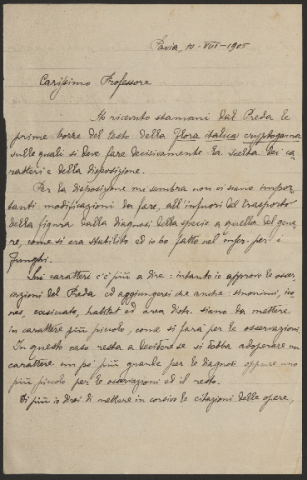 Pavia, 10-VIII-1905
Carissimo Professore
Ho ricevuto stamani dal Preda le
prime bozze del testo della Flora italica cryptogama
sulle quali si deve fare decisivamente la scelta dei ca-
ratteri e della disposizione.
Per la disposizione mi sembra non vi siano impor-
tanti modificazioni da fare, all'infuori del trasporto
della figura dalla diagnosi della specie a quella del gene-
re, come si era stabilito ed io ho fatto nel per i
Funghi.
Sui caratteri c'è più a dire: intanto io approvo le osser-
vazioni del Preda ed aggiungerei che anche: sinonimi, ico-
nes, exsiccata, habitat ed area distr. siano da mettere
in carattere più piccolo, come si farà per le osservazioni.
In questo caso resta a decidere se si debba adoperare un
carattere un po' più grande per le diagnosi oppure uno
più piccolo per le osservazioni ed il resto.
Di più io direi di mettere in corsivo le citazioni delle opere,